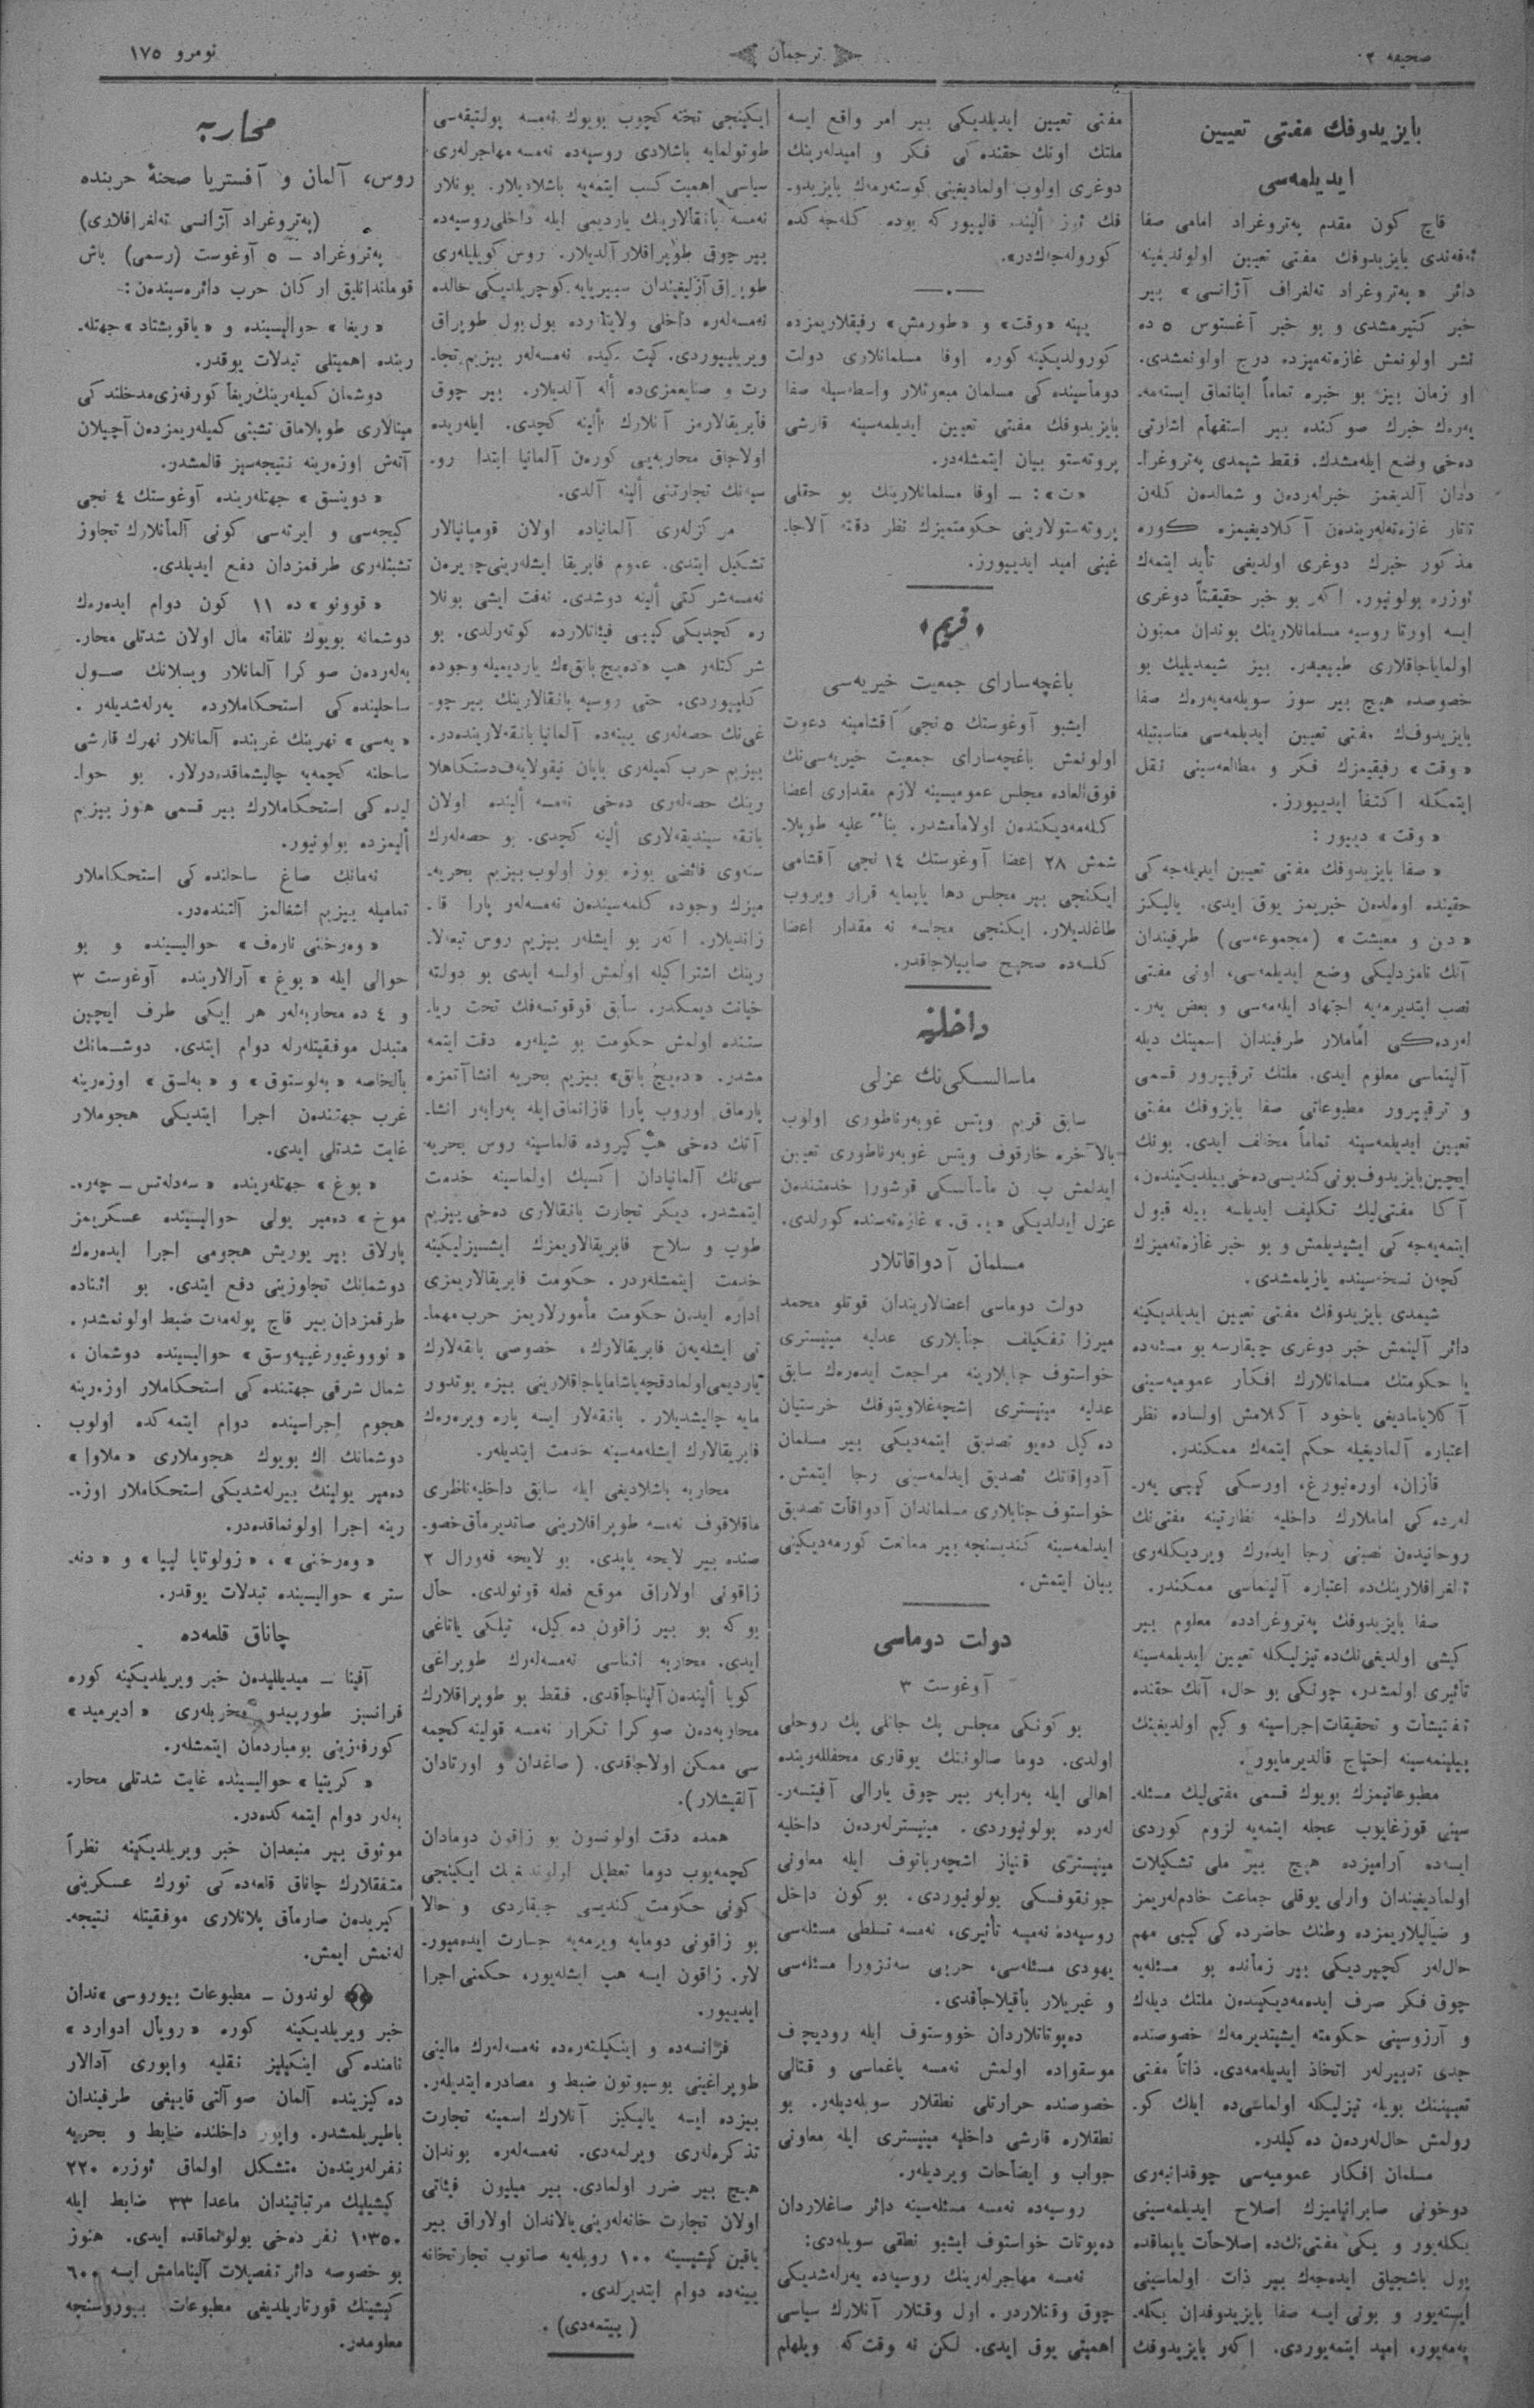 صحیفه ٢
ترجمان
نومرو ١٧٥
بایزیدوفك مفتی تعیین
ایدیلمه‌سی
قاچ كون مقدم په‌تروغراد امامی صفا
ئه‌فه‌ندی بایزیدوفك مفتی تعیین اولوندیغینه
دائر «په‌تروغراد ته‌لغراف آژانسی» بیر
خبر كتیرمشدی و بو خبر آغستوس ٥ ده
نشر اولونمش غازه‌ته‌میزده درج اولونمشدی.
او زمان بیز بو خبره تماماً اینانماق ایسته‌مه‌-
یه‌رك خبرك صوكنده بیر استفهام اشارتی
ده‌خی وضع ایله‌مشدك. فقط شیمدی په‌تروغرا-
ددان آلدیغمز خبرله‌رده‌ن و شمالده‌ن كلن
تاتار غازه‌ته‌له‌رینده‌ن آكلادیغیمزه كوره
مذكور خبرك دوغری اولدیغی تأید ایتمك
ئوزره بولونیور. اكه‌ر بو خبر حقیقتاً دوغری
ایسه اورتا روسیه مسلمانلارینك بوندان ممنون
اولمایاجاقلاری طبیعیدر. بیز شیمدیلیك بو
خصوصده هیچ بیر سوز سویله‌مه‌یه‌رك صفا
بایزیدوفك مفتی تعیین ایدیلمه‌سی مناسبتیله
«وقت» رفیقیمزك فكر و مطالعه‌سینی نقل
ایتمكله اكتفأ ایدییورز.
«وقت» دییور :
«صفا بایزیدوفك مفتی تعیین ایدیله‌جه‌كی
حقینده اوه‌لده‌ن خبریمز یوق ایدی. یالیكز
«دین و معیشت» (مجموعه‌سی) طرفیندان
آنك نامزدلیكی وضع ایدیلمه‌سی، اونی مفتی
نصب ایتدیرمه‌یه اجتهاد ایله‌مه‌سی و بعض یه‌ر-
له‌رده‌كی اماملار طرفیندان اسمینك دیله
آلینماسی معلوم ایدی. ملتك ترقیپرور قسمی
و ترقیپرور مطبوعاتی صفا بایزوفك مفتی
تعیین ایدیلمه‌سینه تماماً مخالف ایدی. بونك
ایچین بایزیدوف بونی كندیسی ده‌خی بیلدیكینده‌ن،
آكا مفتی‌لیك تكلیف ایدیلسه بیله قبول
ایتمه‌یه‌جه‌كی ایشیدیلمش و بو خبر غازه‌ته‌میزك
كچه‌ن نسخه‌سینده یازیلمشدی.
شیمدی بایزیدوفك مفتی تعیین ایدیلدیكینه
دائر آلینمش خبر دوغری چیقارسه بو مسئله‌ده
یا حكومتك مسلمانلارك افكار عمومیه‌سینی
آكلایامادیغی یاخود آكلامش اولساده نظر
اعتباره آلمادیغیله حكم ایتمه‌ك ممكندر.
قازان، اوره‌نبورغ، اورسكی كیبی یه‌ر-
له‌رده‌كی اماملارك داخلیه نظارتینه مفتی‌نك
روحانیده‌ن نصبنی رجا ایده‌رك ویردیكله‌ری
تلغرافلارینك‌ده اعتباره آلینماسی ممكندر.
صفا بایزیدوفك په‌تروغرادده معلوم بیر
كیشی اولدیغی‌نك‌ده تیزلیكله تعیین ایدیلمه‌سینه
تأثیری اولمشدر، چونكی بو حال، آنك حقنده
تفتیشات و تحقیقات اجراسینه و كیم اولدیغینك
بیلینمه‌سینه احتیاج قالدیرمایور.
مطبوعاتیمزك بویوك قسمی مفتی‌لیك مسئله-
سینی قوزغایوب عجله ایتمه‌یه لزوم كوردی
ایسه‌ده آرامیزده هیچ بیر ملی تشكیلات
اولمادیغیندان وارلی یوقلی جماعت خادم‌له‌ریمز
و ضیالیلاریمزده وطنك حاضرده‌كی كیبی مهم
حال‌له‌ر كچیردیكی بیر زمانده بو مسئله‌یه
چوق فكر صرف ایده‌مه‌دیكینده‌ن ملتك دیله‌ك
و آرزوسینی حكومته ایشیتدیرمه‌ك خصوصنده
جدی تدبیرله‌ر اتخاذ ایدیله‌مه‌دی. ذاتاً مفتی
تعییننك بویله تیزلیكله اولماسی‌ده ایلك كو-
رولمش حال‌له‌رده‌ن ده‌كیلدر.
مسلمان افكار عمومیه‌سی چوقدانبه‌ری
دوخونی صابرانیامیزك اصلاح ایدیلمه‌سینی
بكله‌یور و یكی مفتی‌نك‌ده اصلاحات یاپماقده
یول باشجیلق ایده‌جه‌ك بیر ذات اولماسینی
ایسته‌یور و بونی ایسه صفا بایزیدوفدان بكله-
یه‌مه‌یور، امید ایتمه‌یوردی. اكه‌ر بایزیدوفك
مفتی تعیین ایدیلدیكی بیر امر واقع ایسه
ملتك اونك حقنده‌كی فكر و امیدله‌رینك
دوغری اولوب اولمادیغینی كوسته‌رمه‌ك بایزیدو-
فك ئوز ألینده قالییور كه بوده كله‌جه‌كده
كوروله‌جه‌كدر».
ینه «وقت» و «طورمش» رفیقلاریمزده
كورولدیكینه كوره اوفا مسلمانلاری دولت
دوماسینده‌كی مسلمان مبعوثلار واسطه‌سیله صفا
بایزیدوفك مفتی تعیین ایدیلمه‌سینه قارشی
پروته‌ستو بیان ایتمشله‌در.
«ت»: — اوفا مسلمانلارینك بو حقلی
پروته‌ستولارینی حكومتمیزك نظر دقته آلاجا-
غینی امید ایدییورز.
﴿قریم﴾
باغچه‌سارای جمعیت خیریه‌سی
ایشبو آوغوستك ٥ نجی آقشامینه دعوت
اولونمش باغچه‌سارای جمعیت خیریه‌سی‌نك
فوق‌العاده مجلس عمومیسینه لازم مقداری اعضا
كله‌مه‌دیكنده‌ن اولامأمشدر. بناءً علیه طوپلا-
شمش ٢٨ اعضا آوغوستك ١٤ نجی آقشامی
ایكنجی بیر مجلس دها یاپمایه قرار ویروب
طاغلدیلار. ایكنجی مجلسه نه مقدار اعضا
كلسه‌ده صحیح صاییلاجاقدر.
داخلیه
ماسالسكی‌نك عزلی
سابق قریم ویتس غوبه‌رناطوری اولوب
بالآخره خارقوف ویتس غوبه‌رناطوری تعیین
ایدلمش پ. ن ماسالسكی قوشورا خدمتندن
عزل ایدلدیكی «ی. ق.» غازه‌ته‌سنده كورلدی.
مسلمان آدواقاتلار
دولت دوماسی اعضالاریندان قوتلو محمد
میرزا تفكیلف جنابلاری عدلیه مینیستری
خواستوف جنابلارینه مراجعت ایده‌رك سابق
عدلیه مینیستری اشچه‌غلاویتوفك خرستیان
ده‌كیل ده‌یو تصدیق ایتمه‌دیكی بیر مسلمان
آدواقاتك تصدیق ایدلمه‌سینی رجا ایتمش.
خواستوف جنابلاری مسلماندان آدواقات تصدیق
ایدلمه‌سینه كندیسنجه بیر ممانعت كورمه‌دیكینی
بیان ایتمش.
دولت دوماسی
آوغوست ٣
بو كونكی مجلس پك جانلی پك روحلی
اولدی. دوما صالوننك یوقاری محفللرینده
اهالی ایله به‌رابه‌ر بیر چوق یارالی آفیتسه‌ر-
له‌رده بولونیوردی. مینیسترله‌رده‌ن داخلیه
مینیستری قنیاز اشچه‌رباتوف ایله معاونی
جونقوفسكی بولونیوردی. بو كون داخل
روسیه‌ده نه‌میسه تأثیری، نه‌مسه تسلطی مسئله‌سی
یهودی مسئله‌سی، حربی سه‌نزورا مسئله‌سی
و غیریلار باقیلاجاقدی.
ده‌پوتاتلاردان خووستوف ایله رودیچف
موسقواده اولمش نه‌مسه یاغماسی و قتالی
خصوصنده حرارتلی نطقلار سویله‌دیله‌ر. بو
نطقلاره قارشی داخلیه مینیستری ایله معاونی
جواب و ایضاحات ویردیله‌ر.
روسیه‌ده نه‌مسه مسئله‌سینه دائر صاغلاردان
ده‌پوتات خواستوف ایشبو نطقی سویله‌دی:
نه‌مسه مهاجرله‌رینك روسیه‌ده یه‌رله‌شدیكی
چوق وقتلاردر. اول وقتلار آنلارك سیاسی
اهمیتی یوق ایدی. لكن نه وقت كه ویلهلم
ایكینجی تخته كچوب بویوك نه‌مسه پولتیقه‌سی
طوتولمایه باشلادی روسیه‌ده نه‌مسه مهاجرله‌ری
سیاسی اهمیت كسب ایتمه‌یه باشلادیلار. بونلار
نه‌مسه بانقالارینك یاردیمی ایله داخلی روسیه‌ده
بیر چوق طوپراقلار آلدیلار. روس كویلیله‌ری
طوپراق آزلیغیندان سیبیریایه كوچریلدیكی حالده
نه‌مسه‌له‌ره داخلی ولایتلرده بول بول طوپراق
ویریلییوردی. كیت كیده نه‌مسه‌له‌ر بیزیم تجا-
رت و صنایعمزی‌ده أله آلدیلار. بیر چوق
فابریقالارمز آنلارك ألینه كچدی. ایله‌ریده
اولاجاق محاربه‌یی كوره‌ن آلمانیا ابتدا رو-
سیه‌نك تجارتنی ألینه آلدی.
مركزله‌ری آلمانیاده اولان قومپانیالار
تشكیل ایتدی. عموم فابریقا ایشله‌رینی چویره‌ن
نه‌مسه شركتی ألینه دوشدی. نه‌فت ایشی بونلا
ره كچدیكی كیبی فیئاتلارده كوته‌رلدی. بو
شركتله‌ر هپ «دویچ بانق»ك یاردیمیله وجوده
كلییوردی. حتی روسیه بانقالارینك بیر چو-
غی‌نك حصه‌له‌ری یینه‌ده آلمانیا بانقه‌لارینده‌در.
بیزیم حرب كمیله‌ری یاپان نیقولایه‌ف دستكاهلا
رینك حصه‌له‌ری ده‌خی نه‌مسه ألینده اولان
بانقه سیندیقه‌لاری ألینه كچدی. بو حصه‌له‌رك
سنه‌وی فائضی یوزه یوز اولوب بیزیم بحریه-
میزك وجوده كلمه‌سینده‌ن نه‌مسه‌له‌ر پارا قا-
زاندیلار. اكه‌ر بو ایشله‌ر بیزیم روس تبعه‌لا-
رینك اشتراكیله اولمش اولسه ایدی بو دولته
خیانت دیمكدر. سابق قوقوتسه‌فك تحت ریا-
ستنده اولمش حكومت بو شیله‌ره دقت ایتمه
مشدر. «دویچ بانق» بیزیم بحریه انشا آتمزه
پارماق اوروب پارا قازانماق ایله به‌رابه‌ر انشا-
آتك ده‌خی هپ كیروده قالماسینه روس بحریه-
سی‌نك آلمانیادان اكسیك اولماسینه خدمت
ایتمشدر. دیكر تجارت بانقالاری ده‌خی بیزیم
طوپ و سلاح فابریقالاریمزك ایشسیزلیكینه
خدمت ایتمشله‌ردر. حكومت فابریقالاریمزی
اداره ایدن حكومت مأمورلاریمز حرب مهما-
تی ایشله‌یه‌ن فابریقالارك، خصوصی بانقه‌لارك
یاردیمی اولمادقچه یاشامایاجاقلارینی بیزه یوتدور
مایه چالیشدیلار. بانقه‌لار ایسه پاره ویره‌ره‌ك
فابریقالارك ایشله‌مه‌سینه خدمت ایتدیله‌ر.
محاربه باشلادیغی ایله سابق داخلیه ناظری
ماقلاقوف نه‌مسه طوپراقلارینی صاتدیرماق خصو-
صنده بیر لایحه یاپدی. بو لایحه فه‌ورال ٢
زاقونی اولاراق موقع فعله قونولدی. حال
بو كه بو بیر زاقون ده‌كیل، تیلكی یاتاغی
ایدی. محاربه اثناسی نه‌مسه‌له‌رك طوپراغی
كویا ألینده‌ن آلیناجاقدی. فقط بو طوپراقلارك
محاربه‌ده‌ن صوكرا تكرار نه‌مسه قولینه كچمه
سی ممكن اولاجاقدی. (صاغدان و اورتادان
آلقیشلار).
همده دقت اولونسون بو زاقون دومادان
كچمه‌یوب دوما تعطیل اولوندیغینك ایكینجی
كونی حكومت كندیسی چیقاردی و حالا
بو زاقونی دومایه ویرمه‌یه جسارت ایده‌میور-
لار. زاقون ایسه هپ ایشله‌یور، حكمنی اجرا
ایدییور.
فرانسه‌ده و اینكیلته‌ره‌ده نه‌مسه‌له‌رك مالینی
طوپراغینی بوسبوتون ضبط و مصادره ایتدیله‌ر.
بیزده ایسه یالیكیز آنلارك اسمینه تجارت
تذكره‌له‌ری ویرلمه‌دی. نه‌مسه‌له‌ره بوندان
هیچ بیر ضرر اولمادی. بیر میلیون فیئاتی
اولان تجارت خانه‌له‌رینی یالاندان اولاراق بیر
یاقین كیشیسینه ١٠٠ روبله‌یه صاتوب تجارتخانه
یینه‌ده دوام ایتدیرلدی.
(بیتمه‌دی).
محاربه
روس، آلمان و آفستریا صحنهٔ حربنده
(په‌تروغراد آژانسی ته‌لغرافلاری)
په‌تروغراد — ٥ آوغوست (رسمی) باش
قوماندانلیق اركان حرب دائره‌سیندەن :
«ریغا» حوالیسینده و «یاقوبشتاد» جهتله-
رینده اهمیتلی تبدلات یوقدر.
دوشمان كمیله‌رینك ریغا كورفه‌زی مدخلنده‌كی
مینالاری طوپلاماق تشبثی كمیله‌ریمزده‌ن آچیلان
آتش اوزه‌رینه نتیجه‌سیز قالمشدر.
«دوینسق» جهتله‌رینده آوغوستك ٤ نجی
كیجه‌سی و ایرته‌سی كونی آلمانلارك تجاوز
تشبثله‌ری طرفمزدان دفع ایدیلدی.
«قوونو» ده ١١ كون دوام ایده‌ره‌ك
دوشمانه بویوك تلفاته مال اولان شدتلی محار-
به‌له‌رده‌ن صوكرا آلمانلار ویسلانك صول
ساحلینده‌كی استحكاملارده یه‌رله‌شدیله‌ر.
«یه‌سی» نهرینك غربنده آلمانلار نهرك قارشی
ساحلنه كچمه‌یه چالیشماقده‌درلار. بو حوا-
لیده‌كی استحكاملارك بیر قسمی هنوز بیزیم
ألیمزده بولونیور.
نه‌مانك صاغ ساحلنده‌كی استحكاملار
تمامیله بیزیم اشغالمز آلتنده‌در.
«وه‌رخنی ناره‌ف» حوالیسینده و بو
حوالی ایله «بوغ» آرالارینده آوغوست ٣
و ٤ ده محاربه‌له‌ر هر ایكی طرف ایچین
متبدل موفقیتله‌رله دوام ایتدی. دوشمانك
بالخاصه «به‌لوستوق» و «به‌لسق» اوزه‌رینه
غرب جهتنده‌ن اجرا ایتدیكی هجوملار
غایت شدتلی ایدی.
«بوغ» جهتله‌رینده «سه‌دله‌تس — چه‌ره-
موخ» ده‌میر یولی حوالیسینده عسكریمز
پارلاق بیر یوریش هجومی اجرا ایده‌ره‌ك
دوشمانك تجاوزینی دفع ایتدی. بو اثناده
طرفمزدان بیر قاچ پوله‌مه‌ت ضبط اولونمشدر.
«نوووغیورغییه‌وسق» حوالیسینده دوشمان،
شمال شرقی جهتنده‌كی استحكاملار اوزه‌رینه
هجوم اجراسینده دوام ایتمه‌كده اولوب
دوشمانك اك بویوك هجوملاری «ملاوا»
ده‌میر یولینك بیرله‌شدیكی استحكاملار اوزه-
رینه اجرا اولونماقده‌در.
«وه‌رخنی»، «زولوتایا لیپا» و «دنه-
ستر» حوالیسینده تبدلات یوقدر.
چاناق قلعه‌ده
آفینا — میدیللیده‌ن خبر ویریلدیكینه كوره
فرانسز طورپیدو مخربله‌ری «ادیرمید»
كورفه‌زینی بومباردمان ایتمشله‌ر.
«كریتیا» حوالیسینده غایت شدتلی محار-
به‌له‌ر دوام ایتمه‌كده‌در.
موثوق بیر منبعدان خبر ویریلدیكینه نظراً
متفقلارك چاناق قلعه‌ده‌كی تورك عسكرینی
كیریده‌ن صارماق پلانلاری موفقیتله نتیجه-
له‌نمش ایمش.
لوندون — مطبوعات بیوروسی‌ندان
خبر ویریلدیكینه كوره «رویال ادوارد»
نامنده‌كی اینكیلیز نقلیه واپوری آدالار
ده‌كیزینده آلمان صو آلتی قاییغی طرفیندان
باطیریلمشدر. واپور داخلنده ضابط و بحریه
نفرله‌رینده‌ن متشكل اولماق ئوزره ٢٢٠
كیشیلیك مرتباتیندان ماعدا ٣٣ ضابط ایله
١٠٣٥٠ نفر ده‌خی بولونماقده ایدی. هنوز
بو خصوصه دائر تفصیلات آلینامامش ایسه ٦٠٠
كیشینك قورتاریلدیغی مطبوعات بیوروسنجه
معلومدر.